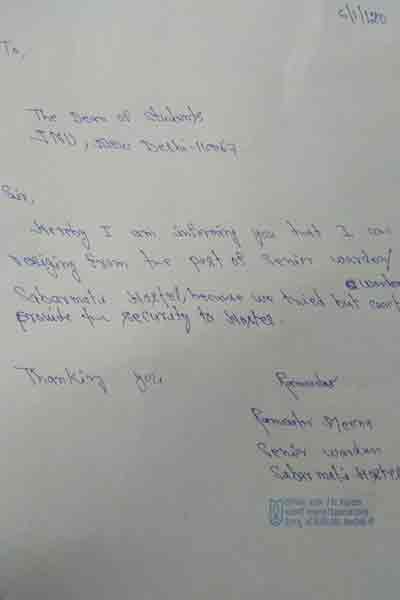 6/1/2020
To,
The Dean of Students
JNU, New Delhi-110067
Sir,
Hereby I am informing you that I am
resigning from the post of Senior warden/
warden
Sabarmati Hostel, because we tried but can't
provide the security to Hostel.
Thanking you
Ramavatar
Ramavatar Meena
Senior warden
Sabarmati Hostel